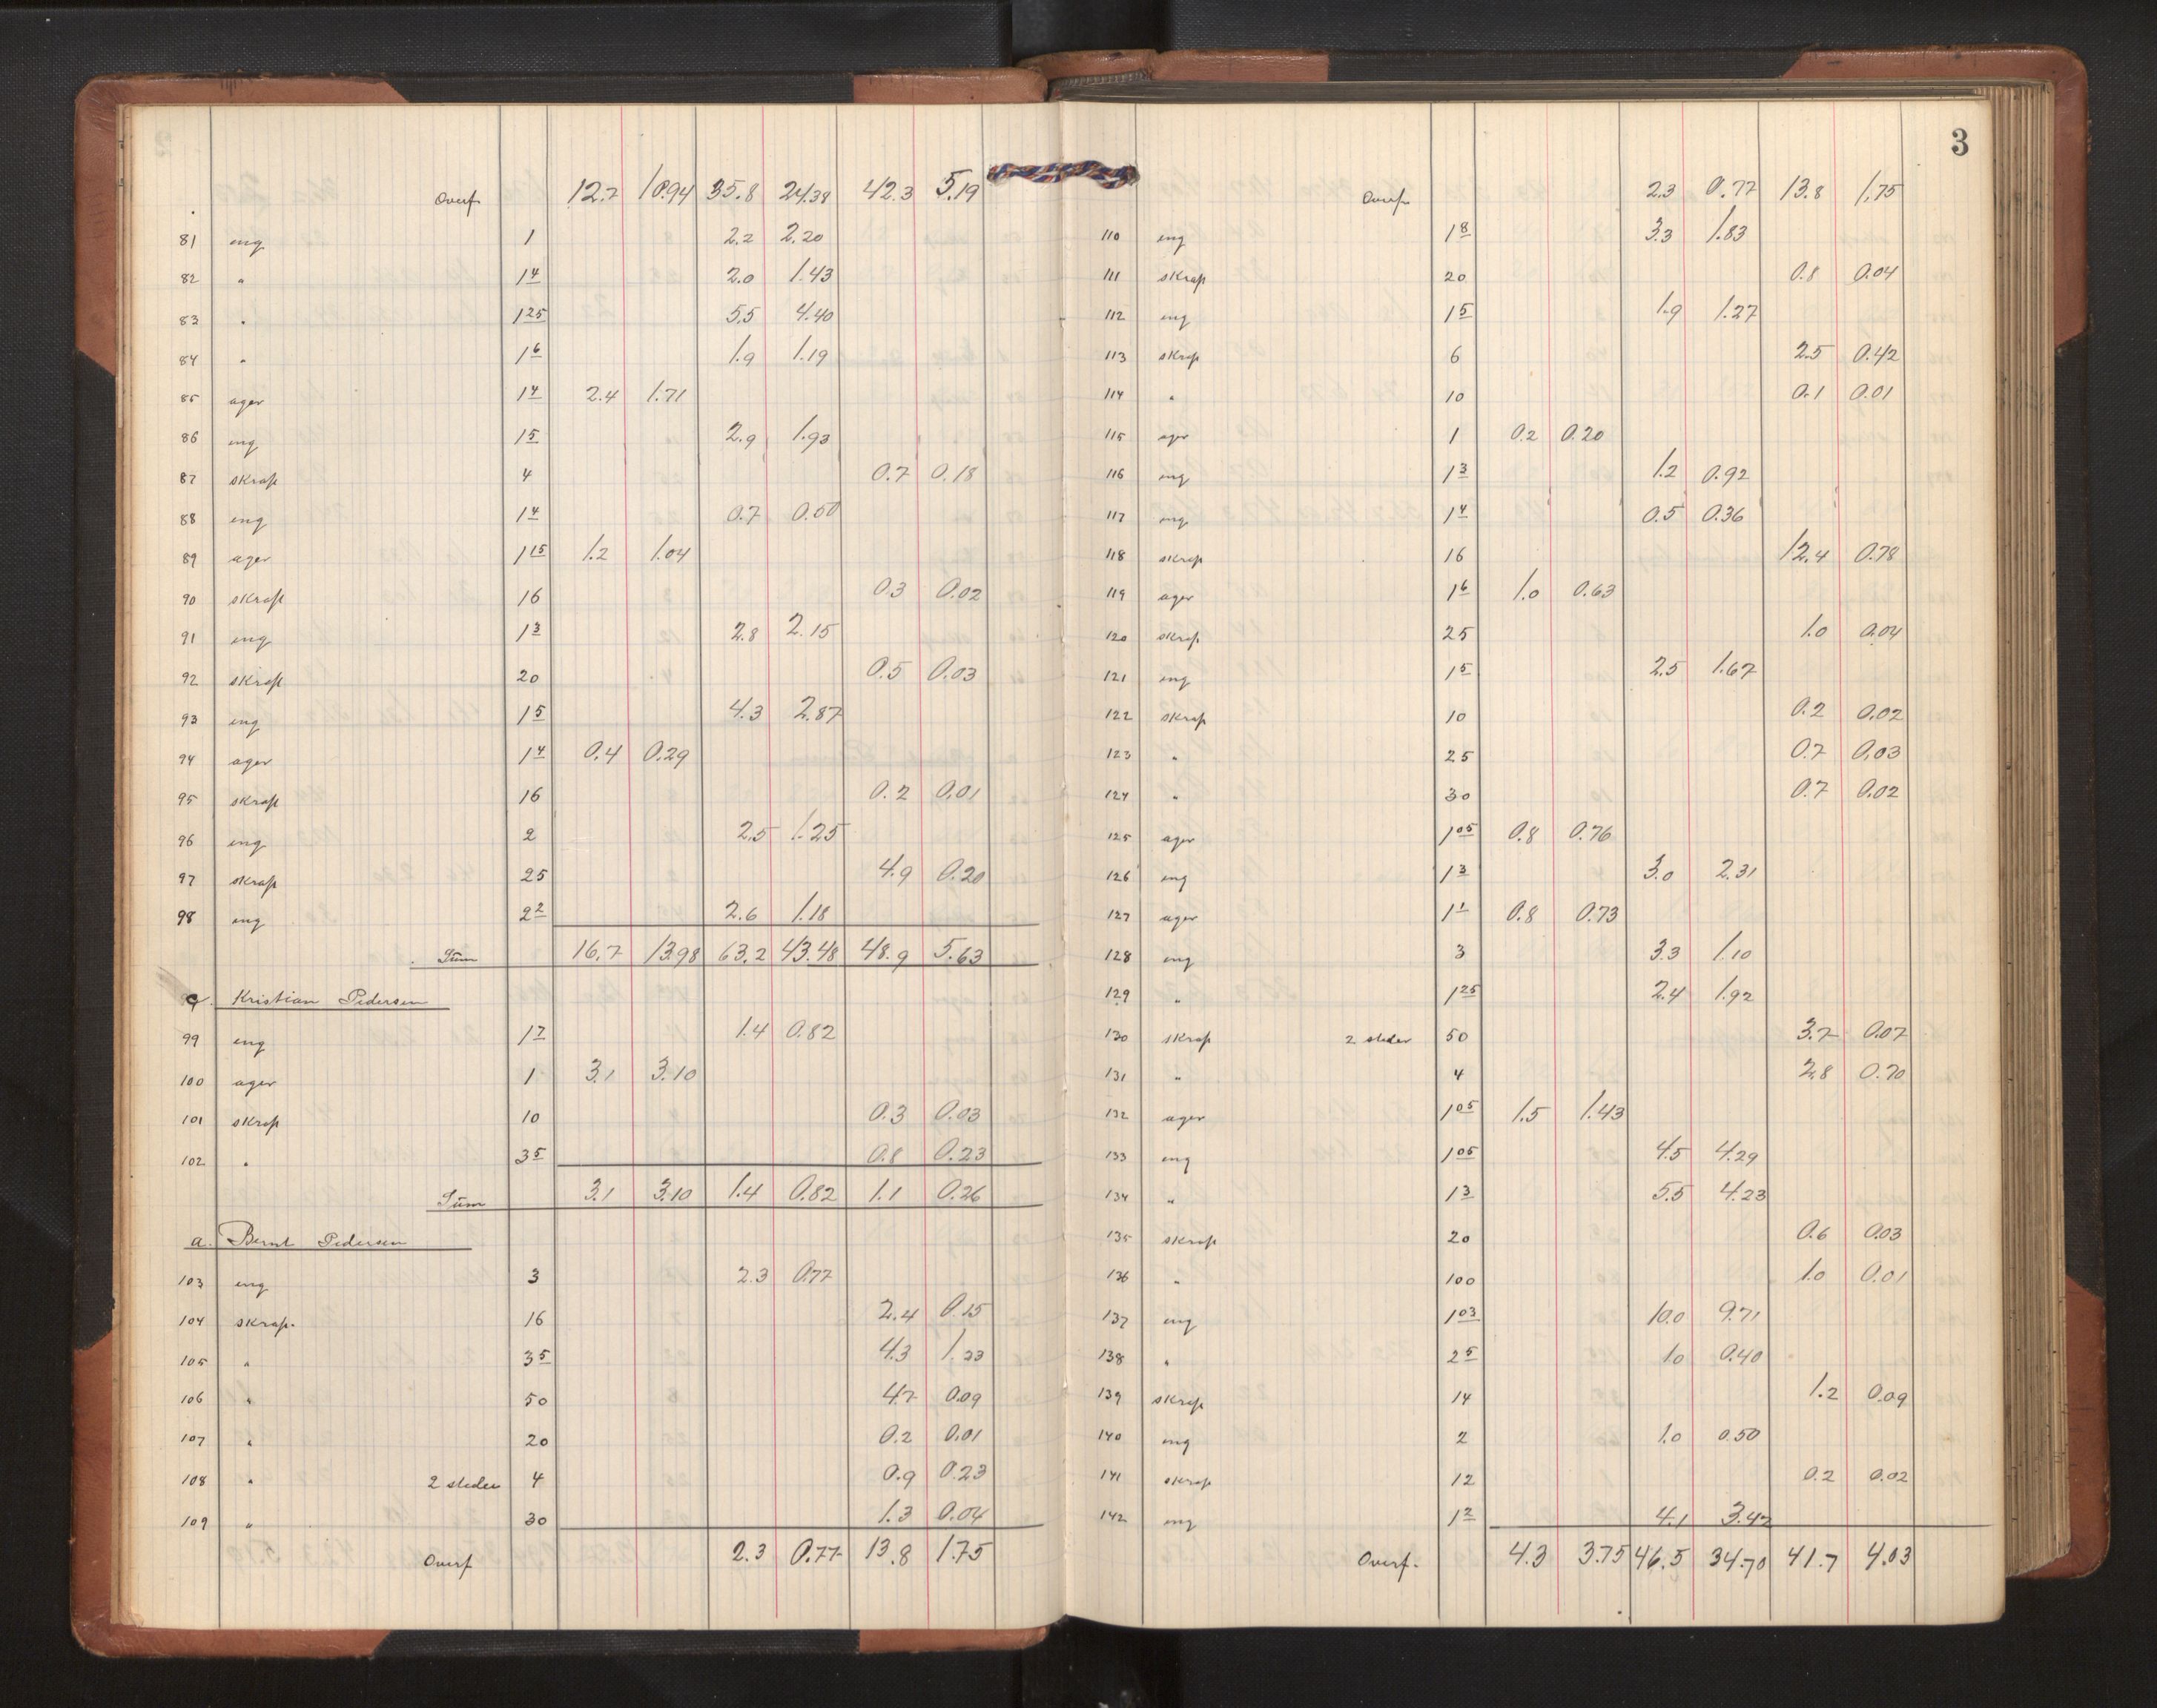 Overf. 12.7 10.94 35.8 24.38 42.3 5.19
81 eng 1 2.2 2.20
82 " 1 4 2.0 1.43
83 " 1 25 5.5 4.40
84 " 1 6 1.9 1.19
85 ager 1 4 2.4 1.71
86 eng 1 5 2.9 1.93
87 skrap 4 0.7 0.18
88 eng 1 4 0.7 0.50
89 ager 1 15 1.2 1.04
90 skrap 16 0.3 0.02
91 eng 1 3 2.8 2.15
92 skrap 20 0.5 0.03
93 eng 1 5 4.3 2.87
94 ager 1 4 0.4 0.29
95 skrap 16 0.2 0.01
96 eng 2 2.5 1.25
97 skrap 25 4.9 0.20
98 eng 2 2 2.6 1.18
Sum 16.7 13.98 63.2 43.48 48.9 5.63
a. Kristian Pedersen
99 eng 1 7 1.4 0.82
100 ager 1 3.1 3.10
101 skrap 10 0.3 0.03
102 " 3 5 0.8 0.23
Sum 3.1 3.10 1.4 0.82 1.1 0.26
a. Bernt Pedersen
103 eng 3 2.3 0.77
104 skrap. 16 2.4 0.15
105 " 3 5 4.3 1.23
106 " 50 4.7 0.09
107 " 20 0.2 0.01
108 " 2 steder 4 0.9 0.23
109 " 30 1.3 0.04
Overf 2.3 0.77 13.8 1.75
3
Overf. 2.3 0.77 13.8 1.75
110 eng 1 8 3.3 1.83
111 skrap 20 0.8 0.04
112 eng 1 5 1.9 1.27
113 skrap 6 2.5 0.42
114 " 10 0.1 0.01
115 ager 1 0.2 0.20
116 eng 1 3 1.2 0.92
117 eng 1 4 0.5 0.36
118 skrap 16 12.4 0.78
119 ager 1 6 1.0 0.63
120 skrap 25 1.0 0.04
121 eng 1 5 2.5 1.67
122 skrap 10 0.2 0.02
123 " 25 0.7 0.03
124 " 30 0.7 0.02
125 ager 1 05 0.8 0.76
126 eng 1 3 3.0 2.31
127 ager 1 1 0.8 0.73
128 eng 3 3.3 1.10
129 " 1 25 2.4 1.92
130 skrap 2 steder 50 3.7 0.07
131 " 4 2.8 0.70
132 ager 1 05 1.5 1.43
133 eng 1 05 4.5 4.29
134 " 1 3 5.5 4.23
135 skrap 20 0.6 0.03
136 " 100 1.0 0.01
137 eng 1 03 10.0 9.71
138 " 2 5 1.0 0.40
139 skrap 14 1.2 0.09
140 eng 2 1.0 0.50
141 skrap 12 0.2 0.02
142 eng 1 2 4.1 3.42
Overf. 4.3 3.75 46.5 34.70 41.7 4.03